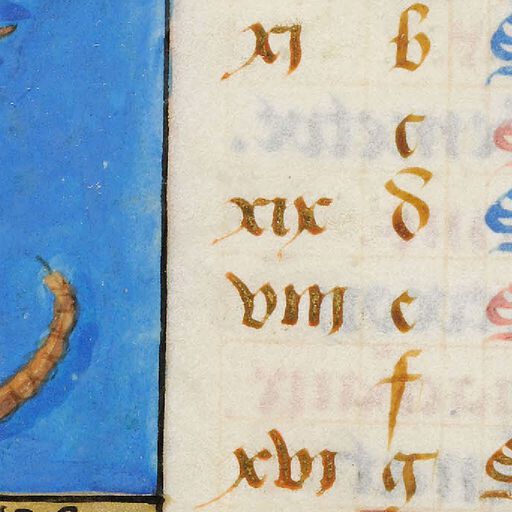 xj b
c
xix d
viij e
f
xvi g